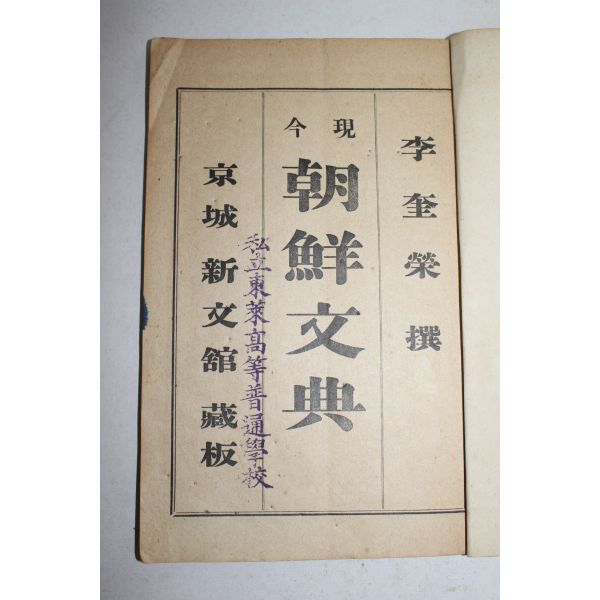 李奎榮撰
現今
朝鮮文典
私立東萊高等普通學校
京城 新文舘 藏板